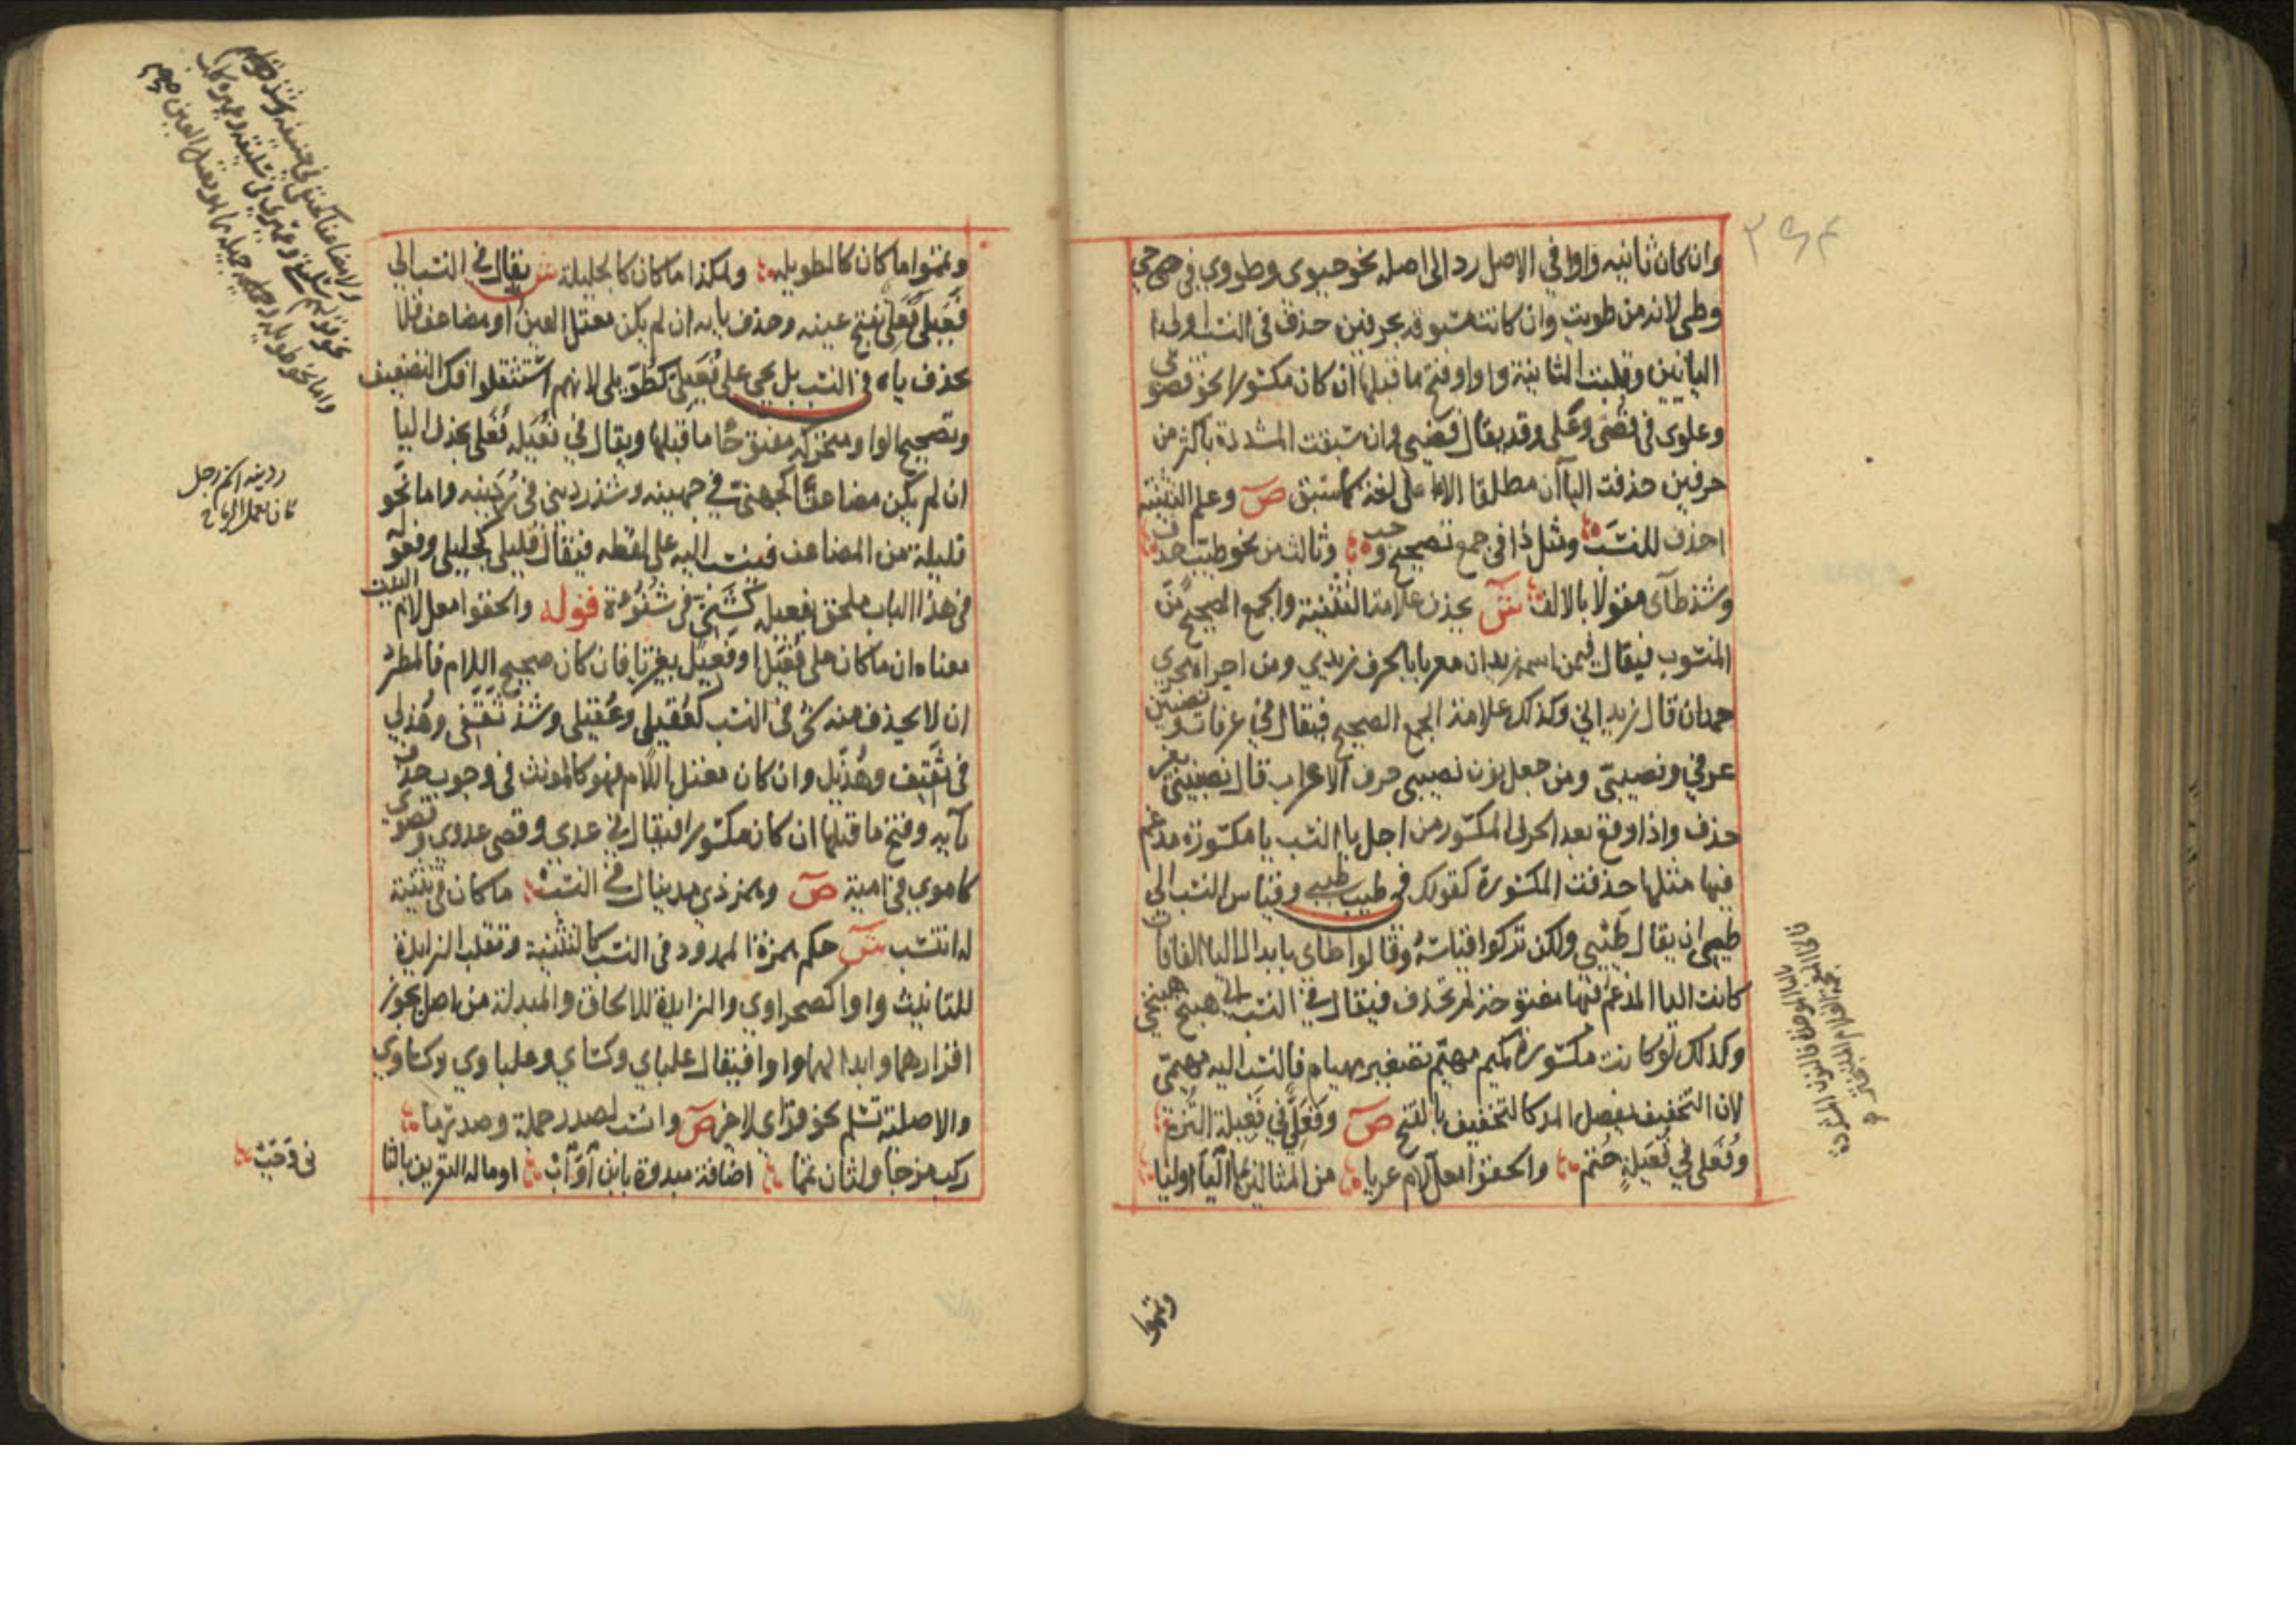 وان كان ثانيه واوا في الاصل رد الى اصله نحو حيوى وطووي في حي
وطي لانه من طويت وان كانت مسبوقة بحرفين حذف في النسب اولى
اليائين وقلبت الثانية واوا وفتح ما قبلها ان كان مكسورا نحو قصوى
وعلوى في قصى وعلى وقد يقال قصيى وان سبقت المشددة باكثر من
حرفين حذفت الياآن مطلقا الا على لغة كما سبق ص وعلم التثنية
احذف للنسب ومثل ذا في جمع تصحيح وجب وثالث من نحو طيب حذف
وشذ طآى مقولا بالالف ش يحذف علامة التثنية والجمع الصحيح من
المنسوب فيقال فيمن اسمه زيدان معربا بالحرف زيدي ومن اجراه مجرى
حمدان قال زيداني وكذلك علامة الجمع الصحيح فيقال في عرفات ونصيبين
عرفي ونصيبي ومن جعل نون نصيبين حرف الاعراب قال نصيبيني بغير
حذف واذا وقع بعد الحرف المكسور من اجل يا النسب يا مكسورة مدغم
فيها مثلها حذفت المكسورة كقولك في طيب طيبي وقياس النسب الى
طيئ ان يقال طيئي ولكن تركوا قياسه وقالوا طاى بابدال اليا الفا فان
كانت اليا المدغم فيها مفتوحة لم تحذف فيقال في النسب الى هبيخ هبيخي
وكذلك لو كانت مكسورة كميم مهيم تصغير مهيام فالنسب اليه مهيمي
لان التخفيف بفصل المد كالتخفيف بالفتح ص وفعلي في فعيلة التزم
وفعلي في فعيلة حتم والحقوا معل لام عريا من المثالين بما اليا اوليا
وتمموا
قال الموضح فالنون الزائدة
وتمموا ما كان كالطويلة وهكذا ما كان كالجليلة ش يقال في النسب الى
فعيلة فعلي بفتح عينه وحذف يايه ان لم يكن معتل العين او مضاعف فلا
يحذف ياه في النسب بل يجى على فعيلي كطويلي لانهم استثقلوا فك التضعيف
وتصحيح الواو متحركة مفتوحا ما قبلها ويقال في فعيلة فعلى بحذف اليا
ان لم يكن مضاعفا كجهني في جهينه وشذ رديني في ردينه واما نحو
قليلة من المضاعف فينسب اليه على لفظه فيقال قليلي كجليلي وفعولة
في هذا الباب ملحق بفعيلة كشنئي في شنوءة قوله والحقوا معل لام البيت
معناه ان ما كان على فعيل او فعيل بغير تا فان كان صحيح اللام فالمطرد
ان لا يحذف منه شى في النسب كعقيلي وعقيلي وشذ ثقفى وهذلي
في ثقيف وهذيل وان كان معتل اللام فهو كالمونث في وجوب حذف
يآيه وفتح ما قبلها ان كان مكسورا فيقال في عدي وقصي عدوي وقصوي
كاموي في امية ص وهمز ذي مد ينال في النسب ما كان في تثنية
له انتسب ش حكم همزة الممدود في النسب كالتثنية وتقلب الزايدة
للتانيث واوا كصحراوي والزايدة للالحاق والمبدلة من اصل يجوز
اقرارهما وابدالهما واوا فيقال علباي وكساي وعلباوي وكساوي
والاصلية تسلم نحو قراي لاخر ص وانسب لصدر جملة وصدر ما
ركب مزجا ولثان تمما اضافة مبدوة بابن او اب او ماله التعريف بالثا
ني وجب
ردينه اسم رجل
كان يعمل الرماح